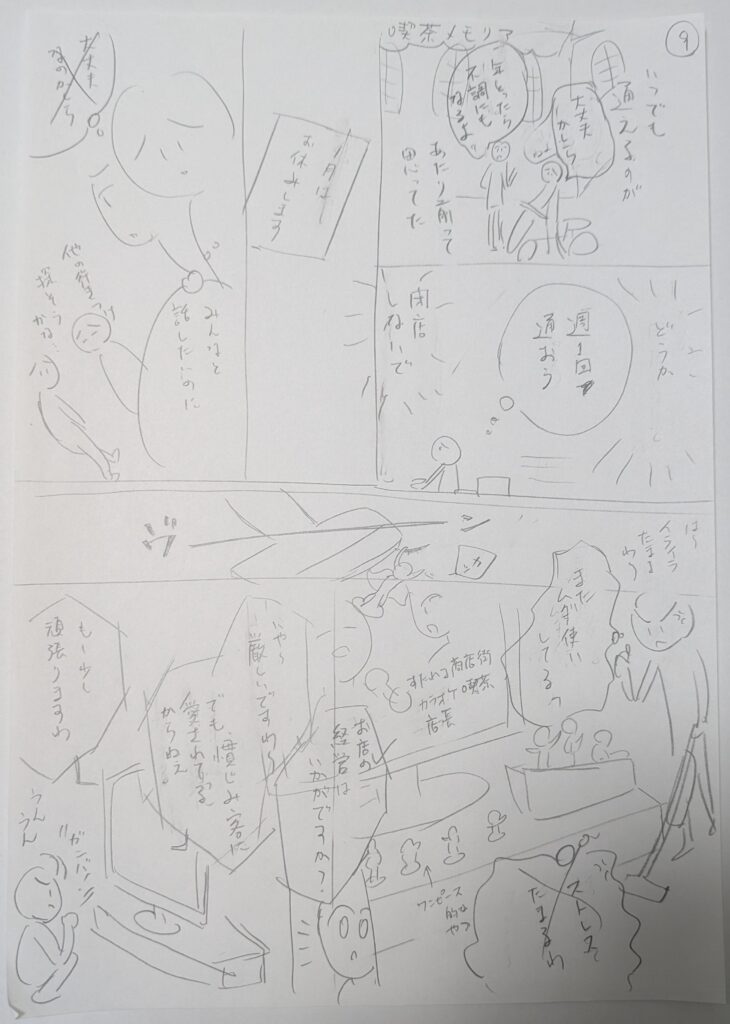 9
喫茶メモリア
いつでも
通えるのが
大丈夫
かしら
年とったら
不調にも
なるよ
あたり前って
思ってた
どうか
週1回
通おう
閉店
しないで
1月は
お休みします
大丈夫
なのかしら
みんなと
話したいのに
他の行きつけ
探そう
かな…
は〜
イライラ
たまる
わ〜
また
ムダ使い
してる
すたれる商店街
カラオケ喫茶
店長
お店の
経営は
いかがですか?
いや〜
厳しいですわ〜
でも、慣じみ客に
愛されてる
からねぇ
もー少し
頑張りますわ
うんうん
ガンバッ
ワンピース
的な
やつ
ストレス
たまるわ